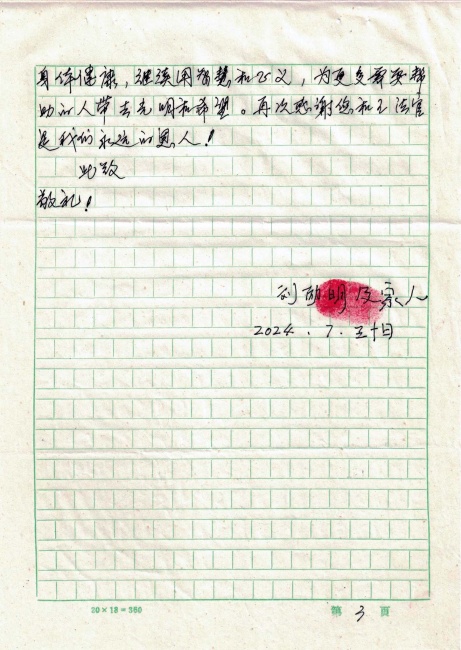 身体健康，继续用智慧和正义，为更多需要帮
助的人带去光明和希望。再次感谢您和王法官
是我们永远的恩人！
此致
敬礼！
刘 明及家人
2024.7.三十日
20×18=360
第 3 页